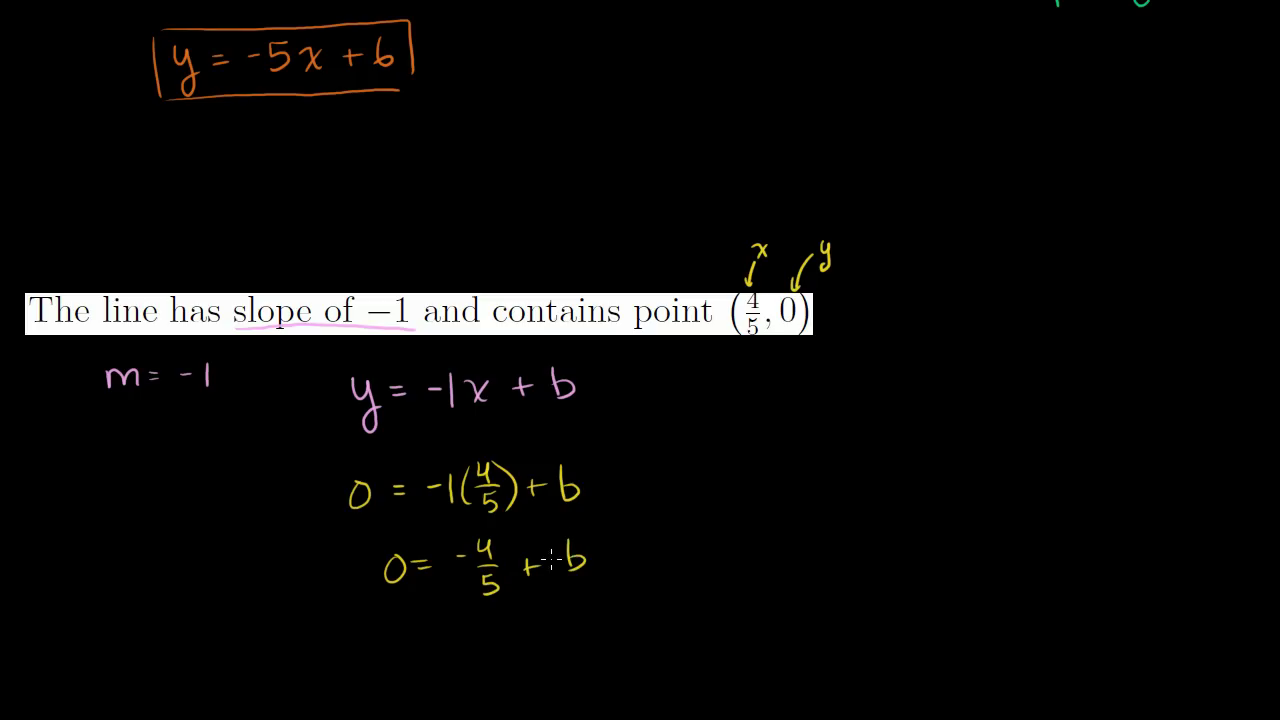 y = -5x + 6
x y
The line has slope of −1 and contains point (4/5, 0)
m = -1
y = -1x + b
0 = -1(4/5) + b
0 = -4/5 + b